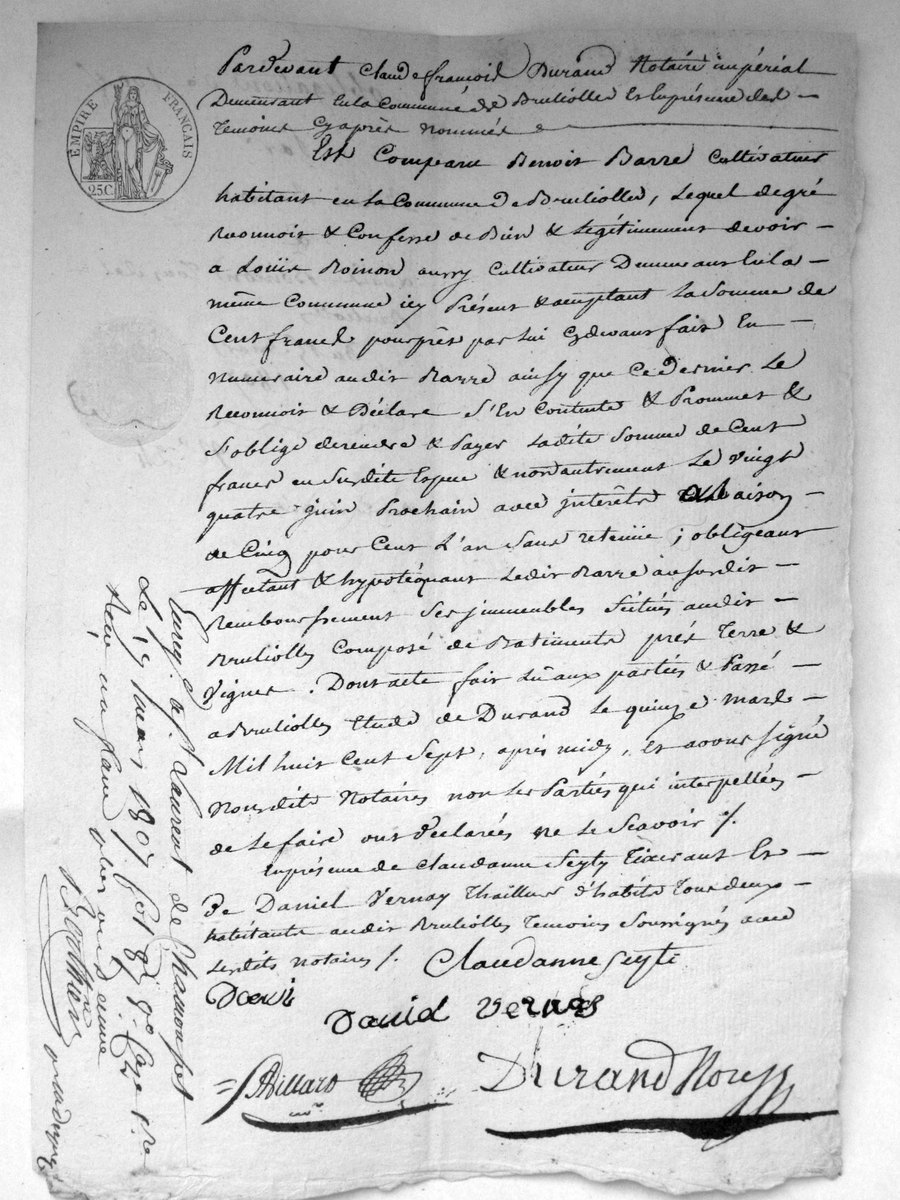 EMPIRE FRANÇAIS
25C.
Pardevant Claude françois Durand Notaire impérial
Demeurant En la Commune de Brullolles En la présence des
Temoins Cyaprès nommés
Est Comparu Benoit Barre Cultivateur
habitant en la Commune De Brullolles, Lequel de gré
Reconnoit & Confesse de Bien & Légitimement devoir
a Loüis Roinon aussy Cultivateur Demeurant En la
même Commune icy Présent & aceptant La Somme de
Cent francs pour prêt par lui Cydevant fait En
Numeraire audit Barre ainsy que Ce Dernier Le
Reconnoit & Déclare S'En Contente & Prommet &
S'oblige de rendre & Payer Ladite Somme de Cent
francs en Susdite Espece & non autrement Le vingt
quatre juin Prochain avec interêts a Raison
de Cinq pour Cent L'an Sans retenüe ; obligeant
affectant & hypotéquant Ledit Barre au susdit
Remboursement Ses jmmeubles Sçitués audit
Brullolles Composé de Batiments prés Terre &
Vignes. Dont acte fait Lû aux parties & Passé
a Brullolles Etude de Durand Le quinze mars
Mil huit Cent Sept, après midy, Et avons Signé
Nousdits Notaires non les Parties qui interpellées
de Le faire ont Declarées ne Le Scavoir /.
En présence de Claudanne Seyty Tixerant Et
De Daniel Vernay Thailleur d'habits Tous deux
habitants audit Brullolles Temoins Soussignés avec
Lesdits notaires /. Claudanne Seyte
David Vernay
Durand Nore
Enreg. a St Laurent de Chamousset
Le 17 mars 1807 fol 87